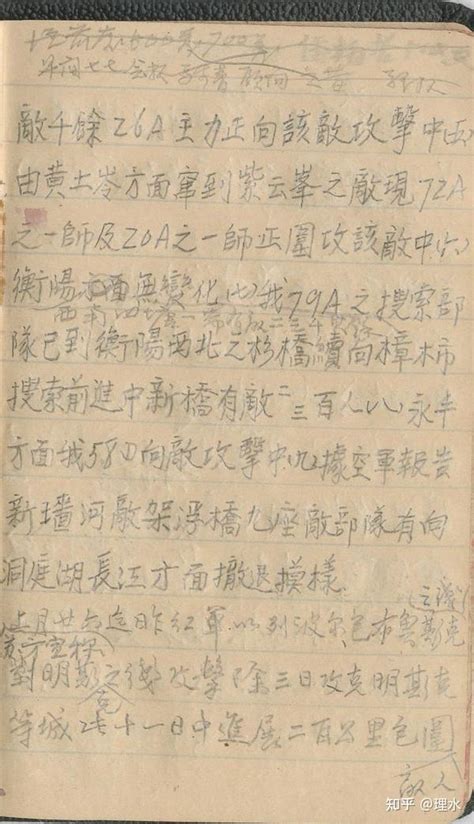 敵千餘26A主力正向該敵攻擊中(五)
由黄土岺方面竄到紫云峯之敵現72A
之一師及20A之一師正圍攻該敵中(六)
衡陽方面無變化(七)我79A之搜索部
隊已到衡陽西北之杉橋續向樟柿
搜索前進中新橋有敵二三百人(八)永丰
方面我58D向敵攻擊中(九)據空軍報告
新墻河敵架浮橋九座敵部隊有向
洞庭湖長江方面撤退模樣
上月廿六迄昨红軍以列波尔包布魯斯克
對明斯克之綫攻擊除三日攻克明斯克
等城 十一日中進展二百公里包圍
敵人
知乎 @理水